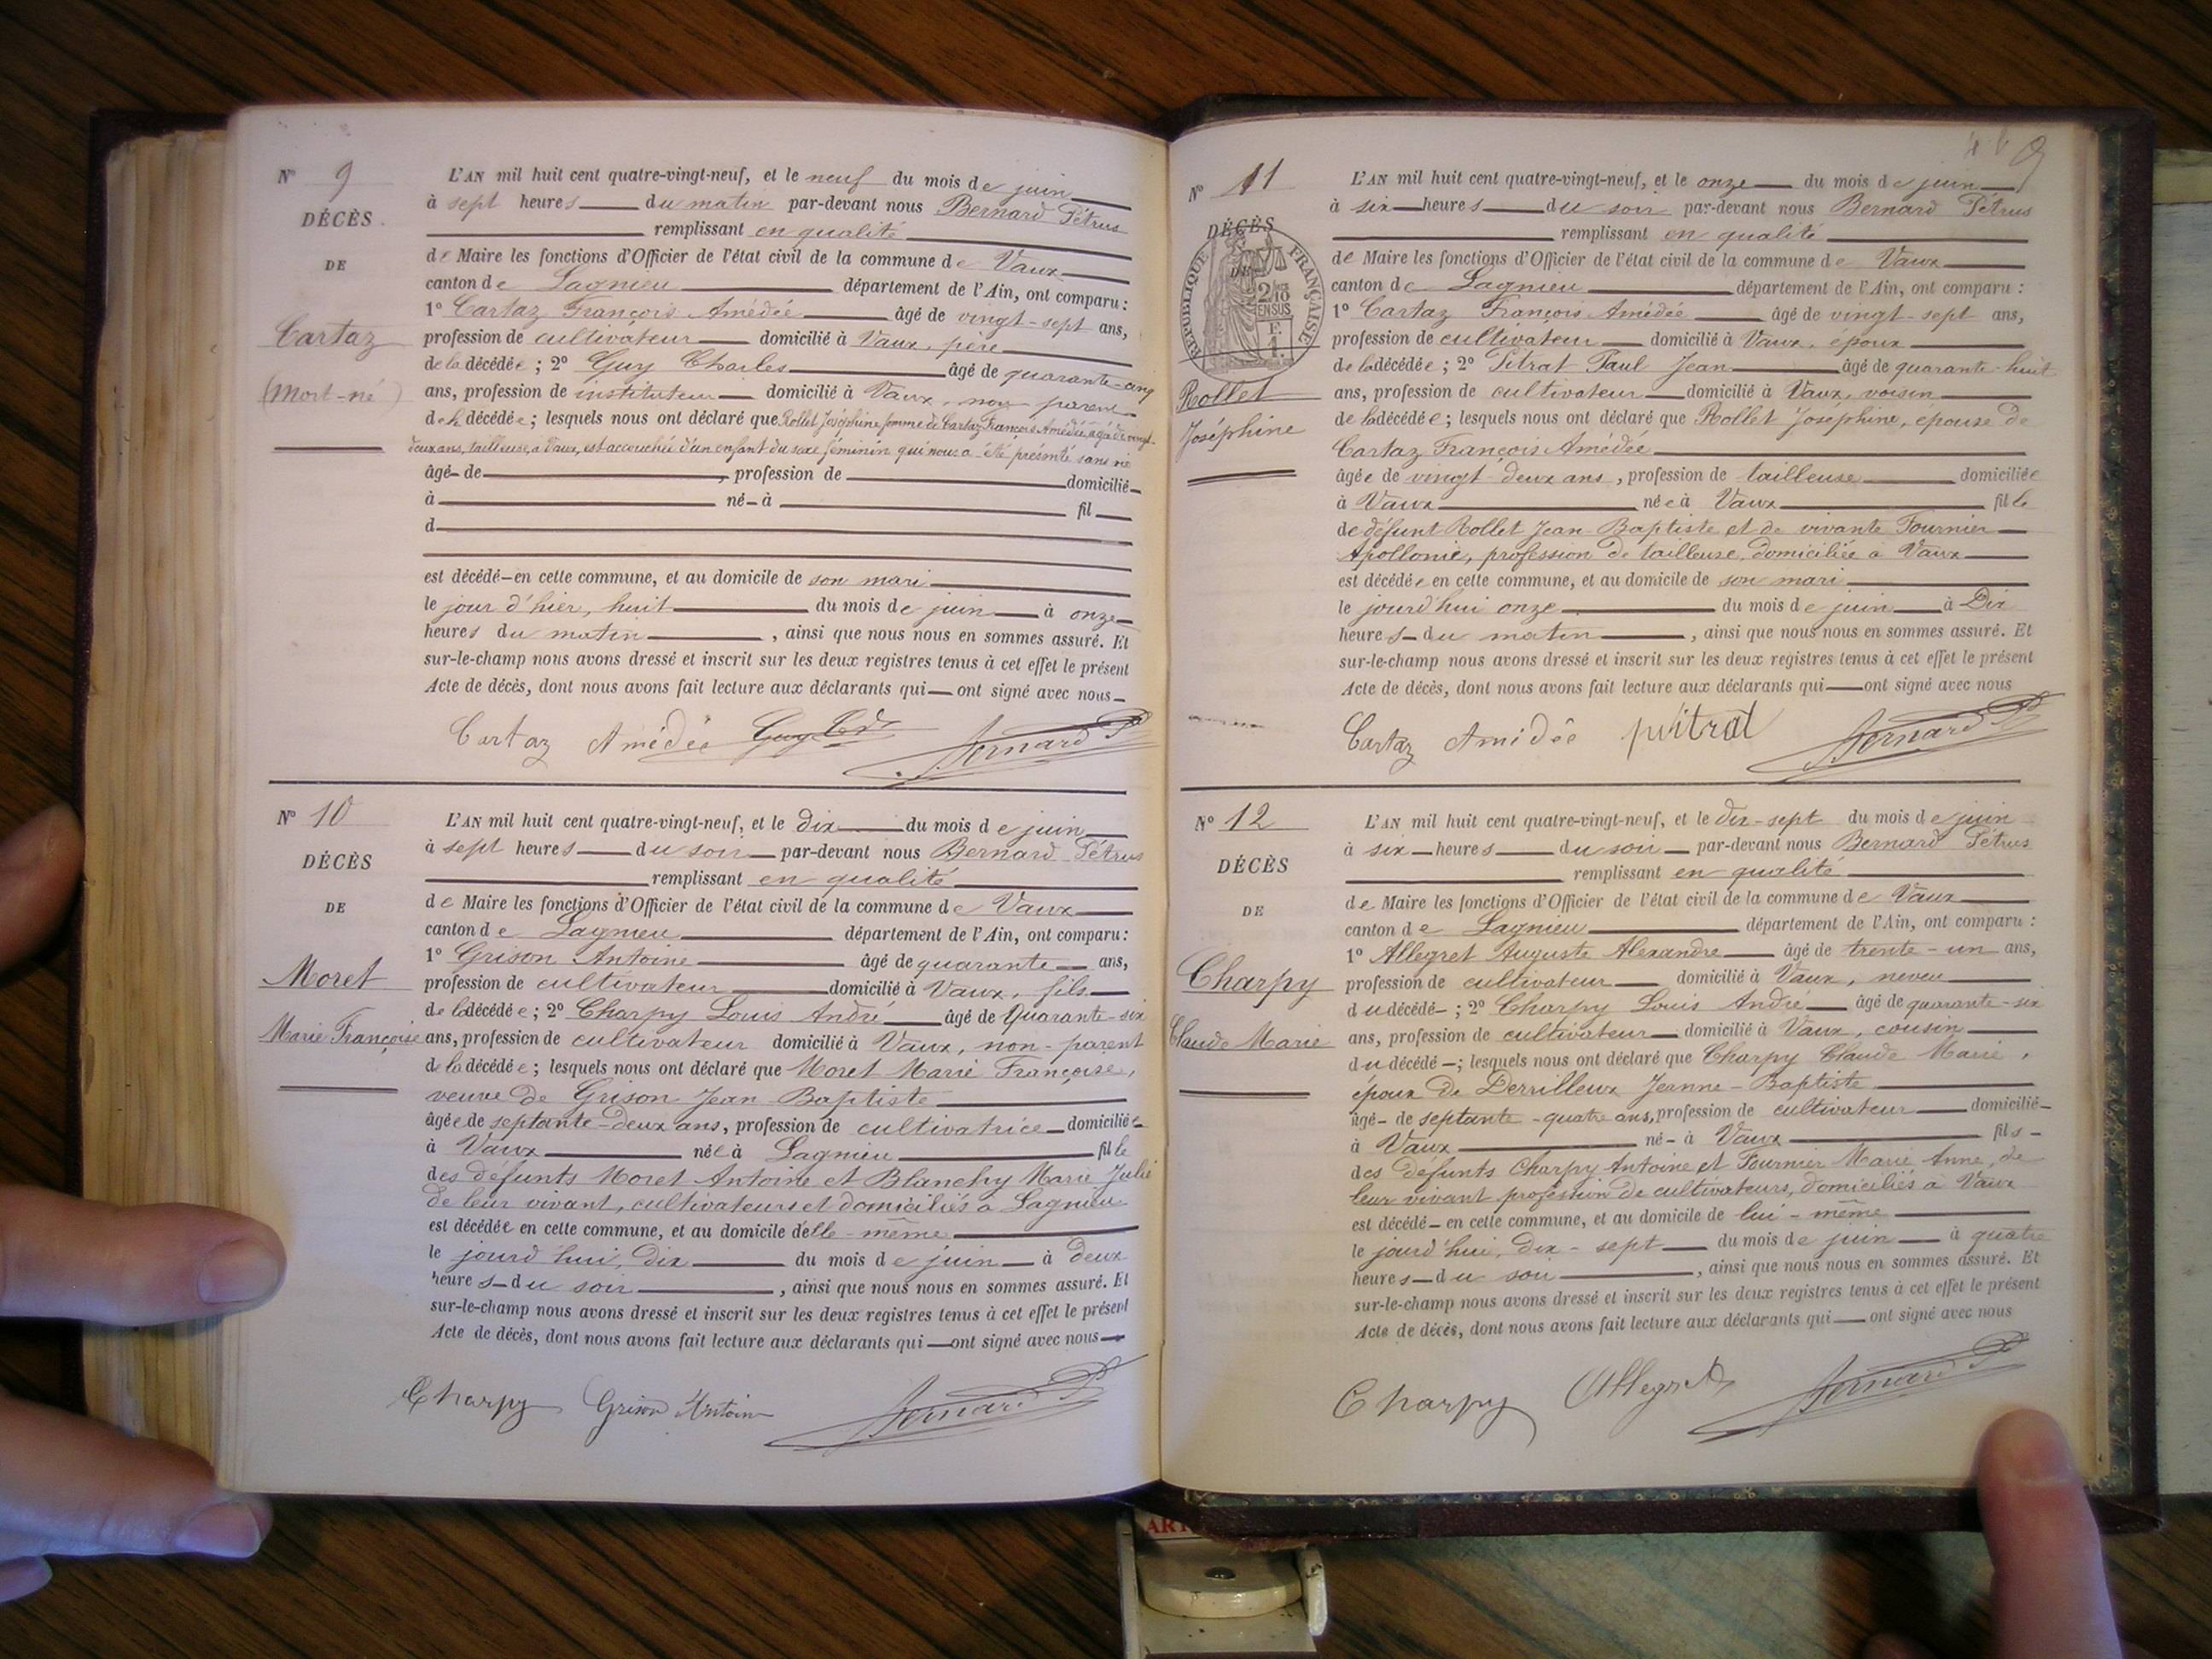 Nº 9
DÉCÈS
DE
Cartaz
(Mort-né)
L'AN mil huit cent quatre-vingt-neuf, et le neuf du mois de juin
à sept heures du matin par-devant nous Bernard Pétrus
remplissant en qualité
de Maire les fonctions d'Officier de l'état civil de la commune de Vaux
canton de Lagnieu département de l'Ain, ont comparu :
1º Cartaz François Amédée âgé de vingt-sept ans,
profession de cultivateur domicilié à Vaux, père
de la décédée ; 2º Guy Charles âgé de quarante-cinq
ans, profession de instituteur domicilié à Vaux, non parent
de la décédée ; lesquels nous ont déclaré que Rollet Joséphine femme de Cartaz François Amédée, âgée de vingt-
deux ans, tailleuse, à Vaux, est accouchée d'un enfant du sexe féminin qui nous a été présenté sans vie
âgé de , profession de domicilié
à né à fil
d
est décédé en cette commune, et au domicile de son mari
le jour d'hier, huit du mois de juin à onze
heures du matin , ainsi que nous nous en sommes assuré. Et
sur-le-champ nous avons dressé et inscrit sur les deux registres tenus à cet effet le présent
Acte de décès, dont nous avons fait lecture aux déclarants qui ont signé avec nous
Cartaz Amédée Guy Ch Bernard P
Nº 10
DÉCÈS
DE
Moret
Marie Françoise
L'AN mil huit cent quatre-vingt-neuf, et le dix du mois de juin
à sept heures du soir par-devant nous Bernard Pétrus
remplissant en qualité
de Maire les fonctions d'Officier de l'état civil de la commune de Vaux
canton de Lagnieu département de l'Ain, ont comparu :
1º Grison Antoine âgé de quarante ans,
profession de cultivateur domicilié à Vaux, fils
de la décédée ; 2º Charpy Louis André âgé de Quarante-six
ans, profession de cultivateur domicilié à Vaux, non-parent
de la décédée ; lesquels nous ont déclaré que Moret Marie Françoise,
veuve de Grison Jean Baptiste
âgée de septante-deux ans, profession de cultivatrice domiciliée
à Vaux née à Lagnieu fille
des défunts Moret Antoine et Blanchy Marie Julie
de leur vivant, cultivateurs et domiciliés à Lagnieu
est décédée en cette commune, et au domicile d'elle-même
le jourd'hui, dix du mois de juin à deux
heures du soir , ainsi que nous nous en sommes assuré. Et
sur-le-champ nous avons dressé et inscrit sur les deux registres tenus à cet effet le présent
Acte de décès, dont nous avons fait lecture aux déclarants qui ont signé avec nous
Charpy Grison Antoine Bernard P
Nº 11
DÉCÈS
DE
RÉPUBLIQUE FRANÇAISE
2/10 EN SUS
F. 1.
Rollet
Joséphine
L'AN mil huit cent quatre-vingt-neuf, et le onze du mois de juin
à six heures du soir par-devant nous Bernard Pétrus
remplissant en qualité
de Maire les fonctions d'Officier de l'état civil de la commune de Vaux
canton de Lagnieu département de l'Ain, ont comparu :
1º Cartaz François Amédée âgé de vingt-sept ans,
profession de cultivateur domicilié à Vaux, époux
de la décédée ; 2º Pitrat Paul Jean âgé de quarante-huit
ans, profession de cultivateur domicilié à Vaux, voisin
de la décédée ; lesquels nous ont déclaré que Rollet Joséphine, épouse de
Cartaz François Amédée
âgée de vingt-deux ans, profession de tailleuse domiciliée
à Vaux née à Vaux fille
de défunt Rollet Jean-Baptiste et de vivante Fournier
Apollonie, profession de tailleuse, domiciliée à Vaux
est décédée en cette commune, et au domicile de son mari
le jourd'hui onze du mois de juin à Dix
heures du matin , ainsi que nous nous en sommes assuré. Et
sur-le-champ nous avons dressé et inscrit sur les deux registres tenus à cet effet le présent
Acte de décès, dont nous avons fait lecture aux déclarants qui ont signé avec nous
Cartaz Amidée pitrat Bernard P
Nº 12
DÉCÈS
DE
Charpy
Claude Marie
L'AN mil huit cent quatre-vingt-neuf, et le dix-sept du mois de juin
à six heures du soir par-devant nous Bernard Pétrus
remplissant en qualité
de Maire les fonctions d'Officier de l'état civil de la commune de Vaux
canton de Lagnieu département de l'Ain, ont comparu :
1º Allegret Auguste Alexandre âgé de trente-un ans,
profession de cultivateur domicilié à Vaux, neveu
du décédé ; 2º Charpy Louis André âgé de quarante-six
ans, profession de cultivateur domicilié à Vaux, cousin
du décédé ; lesquels nous ont déclaré que Charpy Claude Marie,
époux de Derrilleux Jeanne-Baptiste
âgé de septante-quatre ans, profession de cultivateur domicilié
à Vaux né à Vaux fils
des défunts Charpy Antoine et Fournier Marie Anne, de
leur vivant profession de cultivateurs, domiciliés à Vaux
est décédé en cette commune, et au domicile de lui-même
le jourd'hui, dix-sept du mois de juin à quatre
heures du soir , ainsi que nous nous en sommes assuré. Et
sur-le-champ nous avons dressé et inscrit sur les deux registres tenus à cet effet le présent
Acte de décès, dont nous avons fait lecture aux déclarants qui ont signé avec nous
Charpy Allegret Bernard P